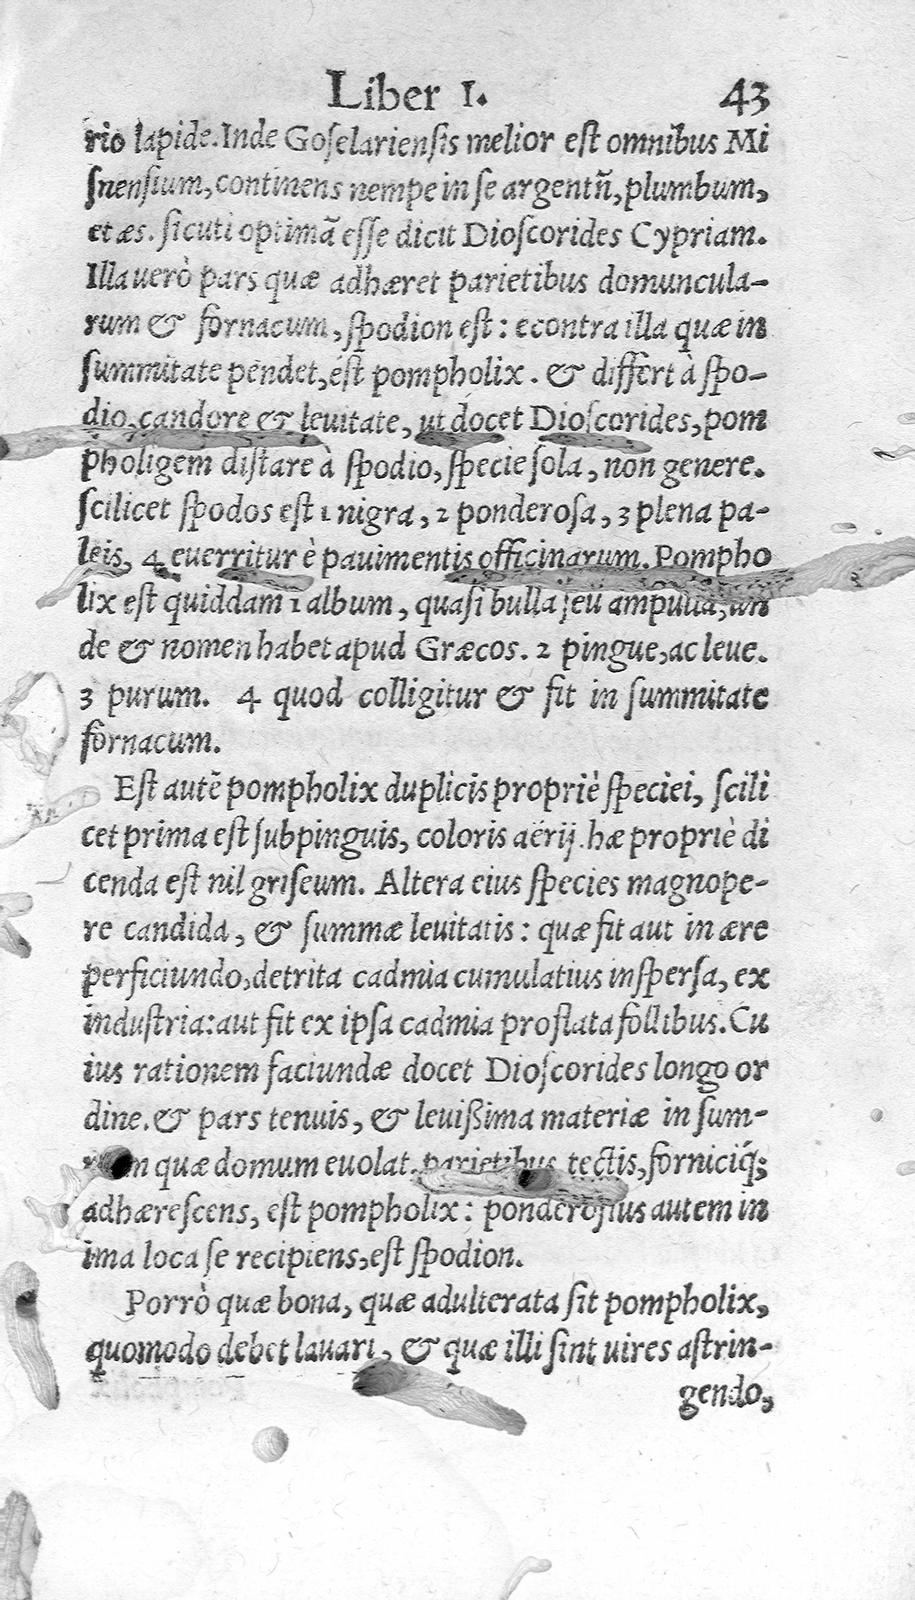 Liber 1. 43
rio lapide. Inde Goſelarienſis melior eſt omnibus Mi
ſnenſium, continens nempe in ſe argentũ, plumbum,
et æs. ſicuti optimã eſſe dicit Dioſcorides Cypriam.
Illa uerò pars quæ adhæret parietibus domuncula-
rum & fornacum, ſpodion eſt: econtra illa quæ in
ſummitate pendet, eſt pompholix. & differt à ſpo-
dio, candore & leuitate, ut docet Dioſcorides, pom
pholigem diſtare à ſpodio, ſpecie ſola, non genere.
ſcilicet ſpodos eſt 1 nigra, 2 ponderoſa, 3 plena pa-
leis, 4 euerritur è pauimentis officinarum. Pompho
lix eſt quiddam 1 album, quaſi bulla ſeu ampulla, un
de & nomen habet apud Græcos. 2 pingue, ac leue.
3 purum. 4 quod colligitur & fit in ſummitate
fornacum.
Eſt autẽ pompholix duplicis propriè ſpeciei, ſcili
cet prima eſt ſubpinguis, coloris aërij. hæ propriè di
cenda eſt nil griſeum. Altera eius ſpecies magnope-
re candida, & ſummæ leuitatis: quæ fit aut in ære
perficiundo, detrita cadmia cumulatius inſperſa, ex
induſtria: aut fit ex ipſa cadmia proflata follibus. Cu
ius rationem faciundæ docet Dioſcorides longo or
dine. & pars tenuis, & leuißima materiæ in ſum-
quæ domum euolat. parietibus tectis, forniciq́;
adhæreſcens, eſt pompholix: ponderoſius autem in
ima loca ſe recipiens, eſt ſpodion.
Porrò quæ bona, quæ adulterata ſit pompholix,
quomodo debet lauari, & quæ illi ſint uires aſtrin-
gendo,